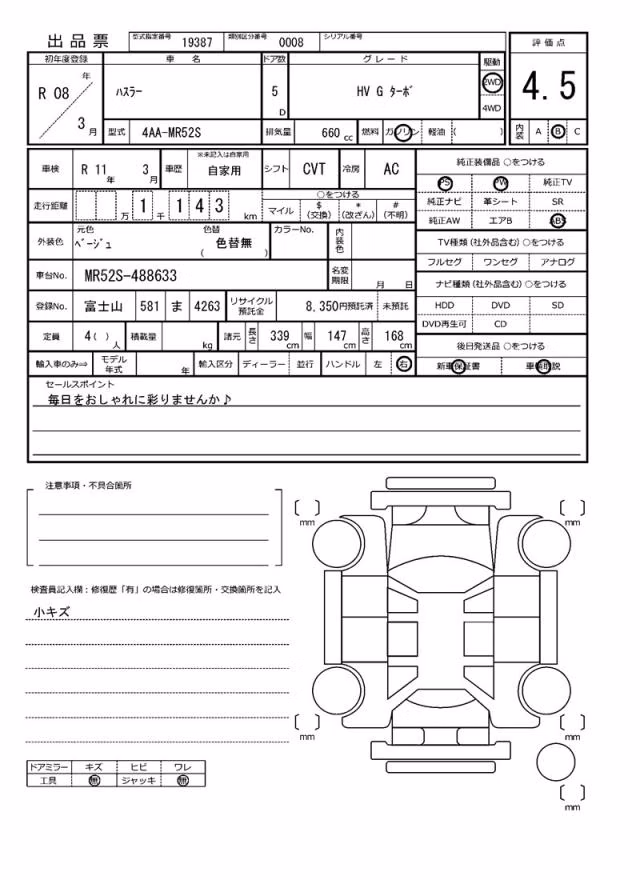 出品票 型式指定番号 19387 類別区分番号 0008 シリアル番号
評価点
初年度登録 車名 ドア数 グレード 駆動
R 08 年 3 月 ハスラー 5 D HV G ターボ 2WD 4WD
4.5
型式 4AA-MR52S 排気量 660 cc 燃料 ガソリン 軽油 ( )
内装 A B C
車検 R 11 年 3 月 車歴 ※未記入は自家用 自家用 シフト CVT 冷房 AC
純正装備品 ○をつける
PS PW 純正TV
純正ナビ 革シート SR
純正AW エアB ABS
走行距離 万 1 千 1 4 3 km
○をつける
マイル $ (交換) * (改ざん) # (不明)
外装色 元色 ベージュ 色替 色替無 ( ) カラーNo. 内装色
TV種類 (社外品含む) ○をつける
フルセグ ワンセグ アナログ
車台No. MR52S-488633 名変期限 月 日
ナビ種類 (社外品含む) ○をつける
HDD DVD SD
DVD再生可 CD
登録No. 富士山 581 ま 4263 リサイクル預託金 8,350円預託済 未預託
定員 4( ) 人 積載量 kg 諸元 長さ 339 cm 幅 147 cm 高さ 168 cm
後日発送品 ○をつける
新車保証書 車輌取説
輸入車のみ⇒ モデル年式 年 輸入区分 ディーラー 並行 ハンドル 左 右
セールスポイント
毎日をおしゃれに彩りませんか♪
注意事項・不具合箇所
検査員記入欄：修復歴「有」の場合は修復箇所・交換箇所を記入
小キズ
mm
mm
mm
mm
mm
ドアミラー キズ ヒビ ワレ
工具 無 ジャッキ 無